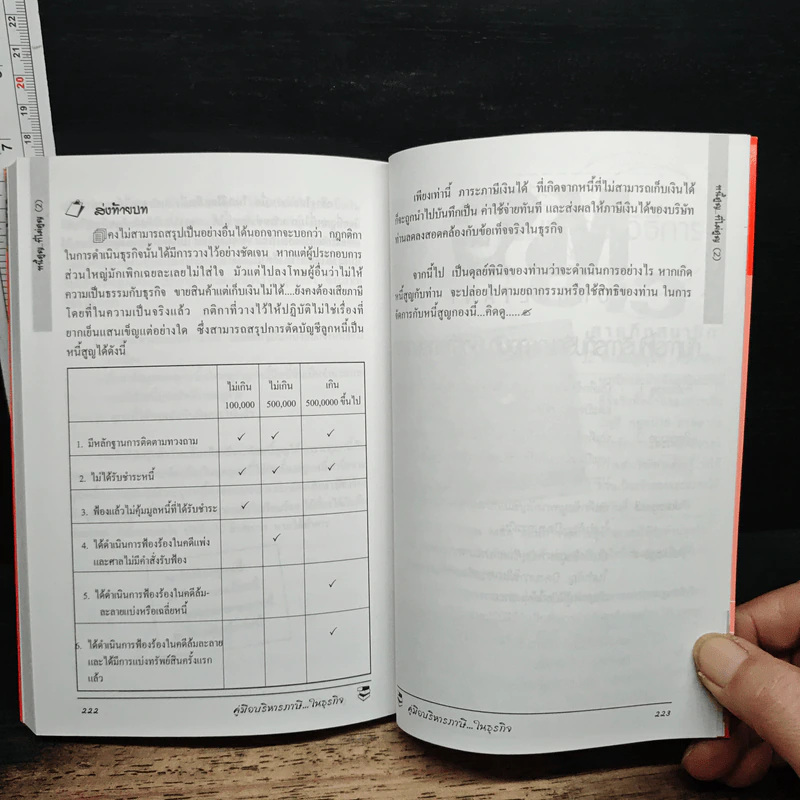 หนี้สูญ..ที่ไม่สูญ (2)
ส่งท้ายบท
คงไม่สามารถสรุปเป็นอย่างอื่นได้นอกจากจะบอกว่า กฎกติกา
ในการดำเนินธุรกิจนั้นได้มีการวางไว้อย่างชัดเจน หากแต่ผู้ประกอบการ
ส่วนใหญ่มักเพิกเฉยละเลยไม่ใส่ใจ มัวแต่ไปลงโทษผู้อื่นว่าไม่ให้
ความเป็นธรรมกับธุรกิจ ขายสินค้าแต่เก็บเงินไม่ได้....ยังคงต้องเสียภาษี
โดยที่ในความเป็นจริงแล้ว กติกาที่วางไว้ให้ปฏิบัติไม่ใช่เรื่องที่
ยากเย็นแสนเข็ญแต่อย่างใด ซึ่งสามารถสรุปการตัดบัญชีลูกหนี้เป็น
หนี้สูญได้ดังนี้
ไม่เกิน 100,000
ไม่เกิน 500,000
เกิน 500,0000 ขึ้นไป
1. มีหลักฐานการติดตามทวงถาม ✓ ✓ ✓
2. ไม่ได้รับชำระหนี้ ✓ ✓ ✓
3. ฟ้องแล้วไม่คุ้มมูลหนี้ที่ได้รับชำระ ✓
4. ได้ดำเนินการฟ้องร้องในคดีแพ่ง ✓
และศาลไม่มีคำสั่งรับฟ้อง
5. ได้ดำเนินการฟ้องร้องในคดีล้ม- ✓
ละลายแบ่งหรือเฉลี่ยหนี้
6. ได้ดำเนินการฟ้องร้องในคดีล้มละลาย ✓
และได้มีการแบ่งทรัพย์สินครั้งแรก
แล้ว
222
คู่มือบริหารภาษี...ในธุรกิจ
เพียงเท่านี้ ภาระภาษีเงินได้ ที่เกิดจากหนี้ที่ไม่สามารถเก็บเงินได้
ก็จะถูกนำไปบันทึกเป็น ค่าใช้จ่ายทันที และส่งผลให้ภาษีเงินได้ของบริษัท
ท่านลดลงสอดคล้องกับข้อเท็จจริงในธุรกิจ
จากนี้ไป เป็นดุลย์พินิจของท่านว่าจะดำเนินการอย่างไร หากเกิด
หนี้สูญกับท่าน จะปล่อยไปตามยถากรรมหรือใช้สิทธิของท่าน ในการ
จัดการกับหนี้สูญกองนี้...คิดดู.....๙
หนี้สูญ..ที่ไม่สูญ (2)
คู่มือบริหารภาษี...ในธุรกิจ
223